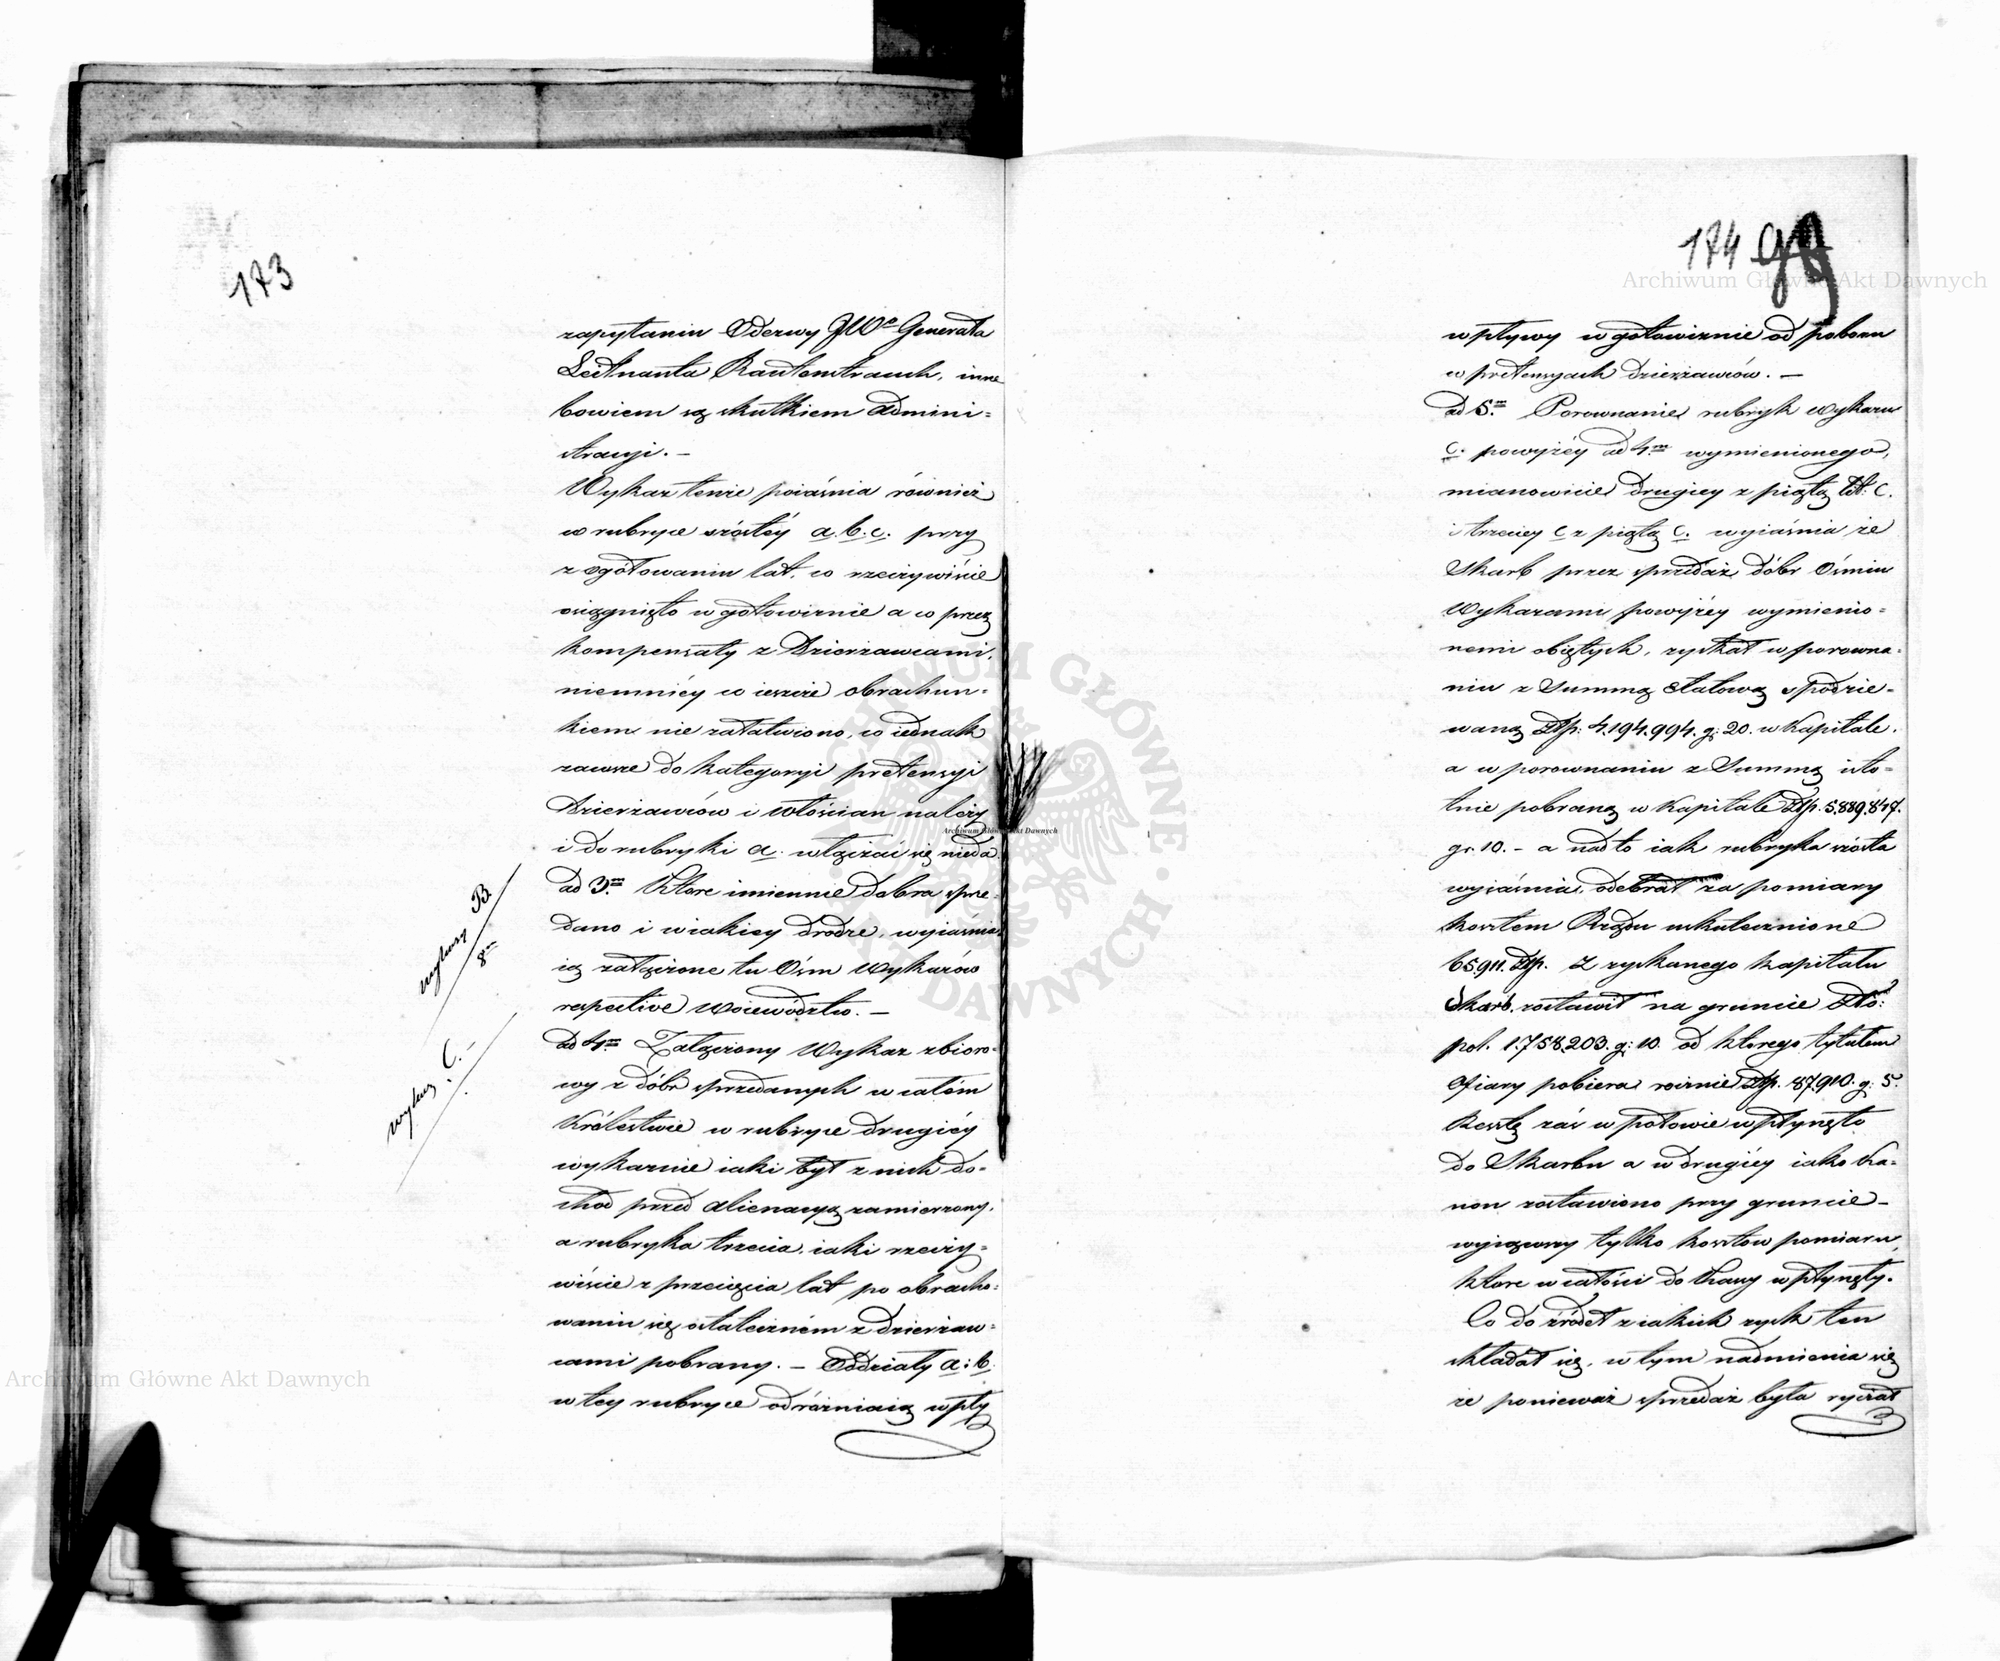 173
zapytaniu Odezwy JWo Generała
Leitnanta Rautenstrauch, inne
bowiem są skutkiem admini=
stracyi. —
Wykaz tenże poiaśnia również
w rubryce szóstéy a. b. c. przy
zogółowaniu lat, co rzeczywiście
osiągnięto w gotowiznie a co przez
kompensaty z Dzierżawcami,
niemniéy co ieszcze obrachun=
kiem nie załatwiono, co iednak
zawsze do kategoryi pretensyi
Dzierżawców i włościan należy
i do rubryki a. włączać się nieda.
ad 3m Które imiennie dobra sprze=
dano i w iakiey drodze, wyiaśnia=
ią załączone tu Ośm Wykazów
respective Woiewództw. —
wykazy B
8m
ad 4m Załączony Wykaz zbioro=
wy z dóbr sprzedanych w całém
Królestwie w rubryce drugiéy
wykaz C. —
wykazuie iaki był z nich do=
chod przed alienacyą zamierzony,
a rubryka trzecia, iaki rzeczy=
wiście z przecięcia lat po obracho=
waniu się ostateczném z dzierżaw=
cami pobrany. — Oddziały a: b.
w tey rubryce odróżniaią wpły
174
wpływy w gotowiznie od poboru
w pretensyach dzierżawców. —
ad 5m Porownanie rubryk wykazu
C. powyżéy ad 4m wymienionego,
mianowicie drugiey z piątą lit: C.
i trzeciey c z piątą c. wyiaśnia że
Skarb przez sprzedaż dóbr Ośmiu
Wykazami powyżéy wymienio=
nemi obiętych, zyskał w porowna=
niu z Summą etatową spodzie=
waną Złp: 4.194.994. g: 20. w kapitale,
a w porownaniu z Summą isto=
tnie pobraną w kapitale Złp. 5.889.847.
gr. 10. – a nadto iak rubryka szósta
wyiaśnia, odebrał za pomiary
kosztem Rządu uskutecznione
65.911. Złp. Z zyskanego kapitału
Skarb zostawił na gruncie Zło:
pol. 1.758.203. g: 10. od którego tytułem
ofiary pobiera rocznie Złp. 87.910. g: 5.
Resztę zaś w połowie wpłynęło
do Skarbu a w drugiéy iako Ka=
non zostawiono przy gruncie —
wyiąwszy tylko kosztow pomiaru,
ktore w całości do kassy wpłynęły.
Co do źródeł z iakich zysk ten
składał się, w tym nadmienia się
że ponieważ sprzedaż była ryczał
Archiwum Główne Akt Dawnych
Archiwum Główne Akt Dawnych
Archiwum Główne Akt Dawnych
ARCHIWUM GŁÓWNE AKT DAWNYCH